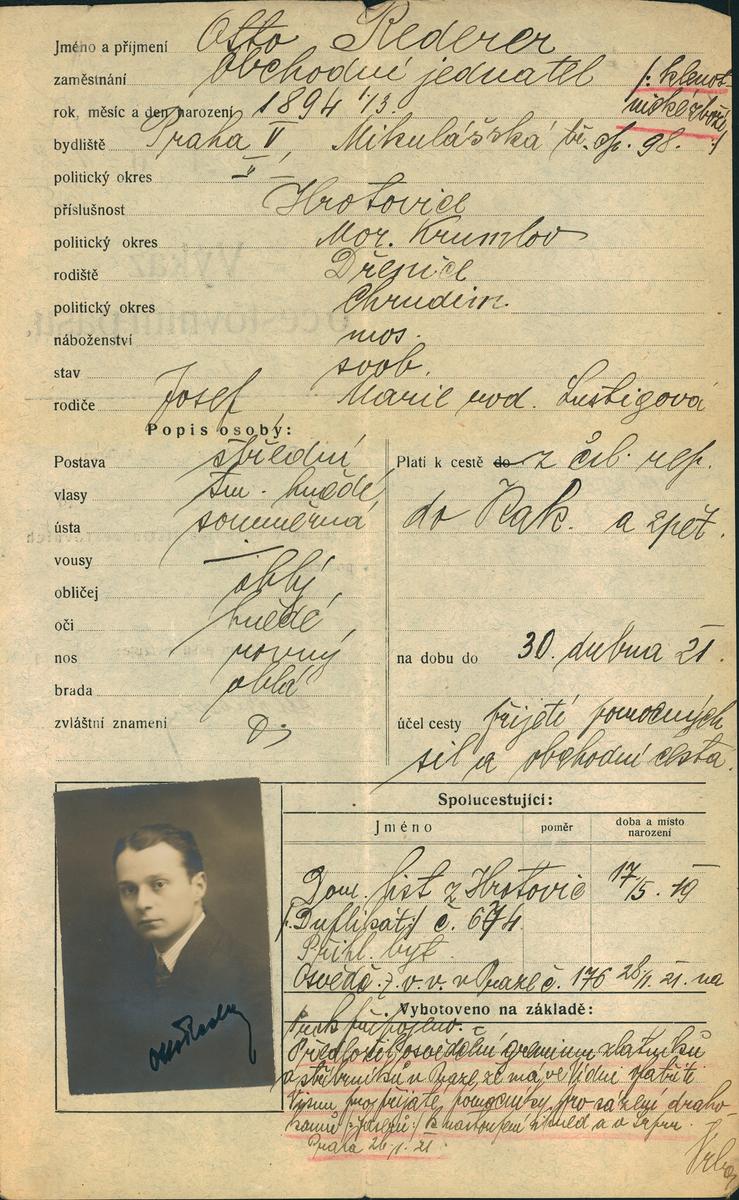 Jméno a přijmení Otto Rederer
zaměstnání Obchodní jednatel /: klenot-
nické zboží :/
rok, měsíc a den narození 1894 1/13.
bydliště Praha V Mikulášská tř. čp. 98.
politický okres V
příslušnost Hrotovice
politický okres Mor. Krumlov
rodiště Dřenice
politický okres Chrudim.
náboženství mos.
stav svob.
rodiče Josef Marie rod. Lustigová
Popis osoby:
Postava střední
vlasy tm. hnědé
ústa souměrná
vousy —
obličej oblý
oči hnědé
nos rovný
brada oblá
zvláštní znamení
Platí k cestě do z čsl. rep.
do Rak. a zpět.
na dobu do 30. dubna 21.
účel cesty přijetí pomocných
sil a obchodní cesta.
Spolucestující:
Jméno poměr doba a místo narození
Dom. list z Hrotovic 17/5. 19
/: Duplikát :/ č. 674.
Přihl. byt.
Osvědč. v. v. v Praze č. 176 28/1. 21. na
Vyhotoveno na základě:
Předložil osvědčení gremium zlatníků
a stříbrníků v Praze, že má ve Vídni
pro přijaté pomocníky pro sázení draho-
kamů
Praha 26/1. 21.